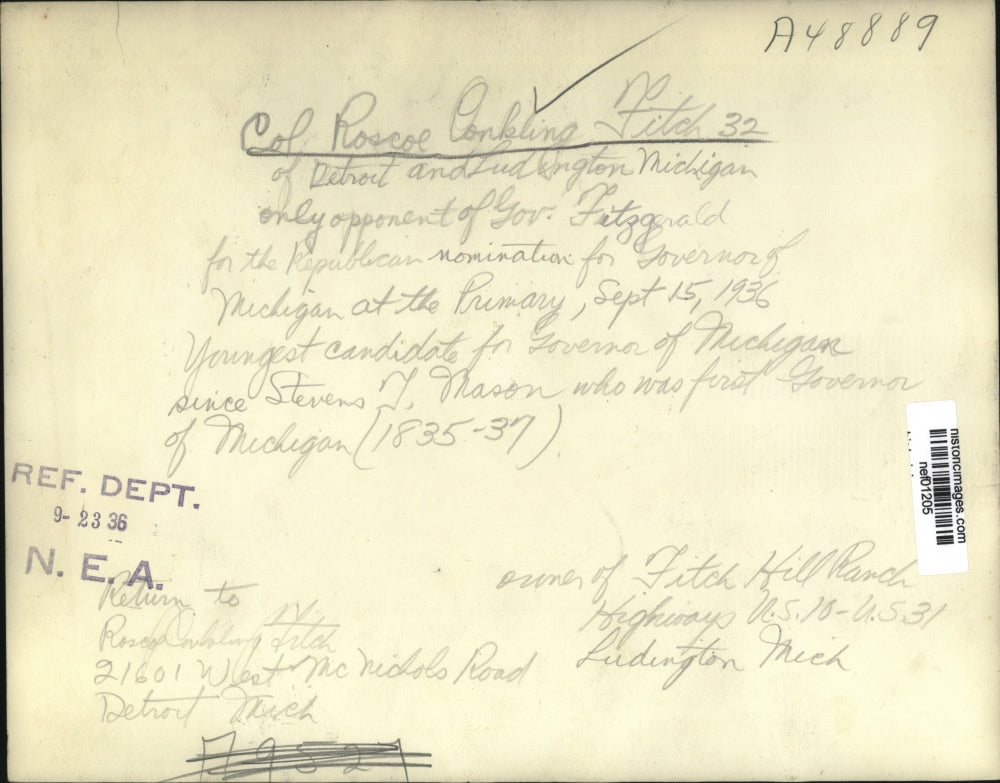 A48889
Col Roscoe Conkling Fitch 32
of Detroit and Ludington Michigan
only opponent of Gov. Fitzgerald
for the Republican nomination for Governor of
Michigan at the Primary, Sept 15, 1936
Youngest candidate for Governor of Michigan
since Stevens T. Mason who was first Governor
of Michigan (1835-37).
historicimages.com
nef01205
REF. DEPT.
9-23 36
N. E. A.
Return to
Roscoe Conkling Fitch
21601 West McNichols Road
Detroit Mich
owner of Fitch Hill Ranch
Highways U.S. 10-U.S 31
Ludington Mich
79527